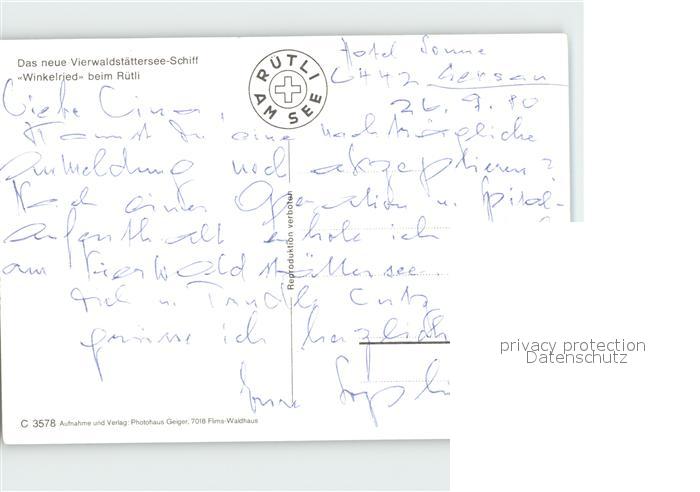 Das neue Vierwaldstättersee-Schiff
«Winkelried» beim Rütli
RÜTLI
AM SEE
Hotel Sonne
6442 Gersau
26. 9. 80
Liebe
Kannst du eine nachträgliche
Anmeldung noch akzeptieren?
Nach einer Operation u. Spital-
aufenthalt erhole ich
am Vierwaldstättersee.
Dich u. Trudle
grüsse ich herzlich
Reproduktion verboten
privacy protection
Datenschutz
C 3578 Aufnahme und Verlag: Photohaus Geiger, 7018 Flims-Waldhaus